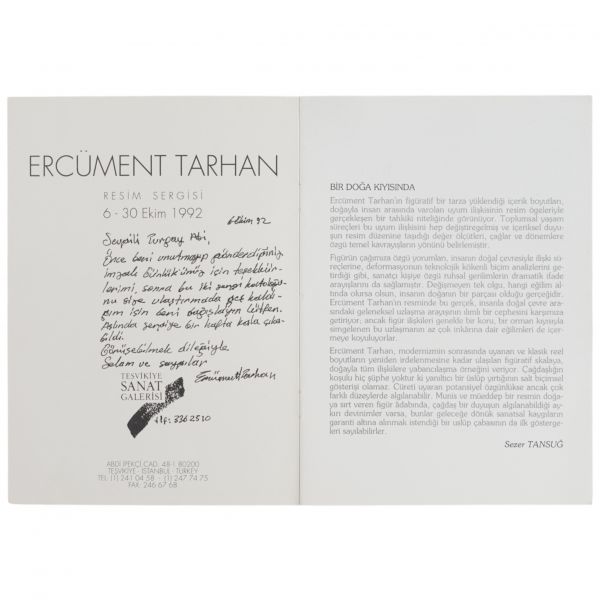 ERCÜMENT TARHAN
RESİM SERGİSİ
6 - 30 Ekim 1992
6 Ekim 92
Sevgili Turgay Abi,
Önce beni unutmayıp gönderdiğiniz
imzalı Günlükünüz için teşekkür-
lerimi, sonra bu iki sergi kataloğu-
nu size ulaştırmada geç kaldı-
ğım için beni bağışlayın lütfen.
Aslında sergiye bir hafta kala çıka-
bildi.
Görüşebilmek dileğiyle
Selam ve saygılar
Ercüment Tarhan
TEŞVİKİYE
SANAT
GALERİSİ
tlf: 3362510
ABDİ İPEKÇİ CAD. 48-1 80200
TEŞVİKİYE - İSTANBUL - TURKEY
TEL: (1) 241 04 58 - (1) 247 74 75
FAX: 246 67 68
BİR DOĞA KIYISINDA
Ercüment Tarhan'ın figüratif bir tarza yüklendiği içerik boyutları,
doğayla insan arasında varolan uyum ilişkisinin resim öğeleriyle
gerçekleşen bir tahkiki niteliğinde görünüyor. Toplumsal yaşam
süreçleri bu uyum ilişkisini hep değiştirmiş ve içeriksel duyu-
şun resim düzenine taşıdığı değer ölçütleri, çağlar ve dönemlere
özgü temel kavrayışların yönünü belirlemiştir.
Figürün çağımıza özgü yorumları, insanın doğal çevresiyle ilişki sü-
reçlerine, deformasyonun teknolojik kökenli biçim analizlerini getir-
diği gibi, sanatçı kişiye özgü ruhsal gerilimlerin dramatik ifade
arayışlarını da sağlamıştır. Değişmeyen tek olgu, hangi eğilim al-
tında olursa olsun, insanın doğanın bir parçası olduğu gerçeğidir.
Ercüment Tarhan'ın resminde bu gerçek, insanla doğal çevre ara-
sındaki geleneksel uzlaşma arayışının ılımlı bir cephesini karşımıza
getiriyor; ancak figür ilişkisini genellikle bir koru, bir orman kıyısıyla
simgelenen bu uzlaşmanın az çok inkârına dair eğilimleri de içer-
meye koyuluyorlar.
Ercüment Tarhan, modernizmin sonrasında uyanan ve klasik reel
boyutların yeniden irdelenmesine kadar ulaşılan figüratif skalaya,
doğayla tüm ilişkilere yabancılaşma örneğini veriyor. Çağdaşlığın
koşulu hiç şüphe yoktur ki yanıltıcı bir üslûp yırtığının salt biçimsel
gösterişi olamaz. Cüreti uyaran potansiyel özgünlükse ancak çok
farklı düzeylerde algılanabilir. Munis ve müeddep bir resmin doğa-
ya sırt veren figür âdabında, çağdaş bir duyuşun algılanabildiği ay-
kırı devinimler varsa, bunlar geleceğe dönük sanatsal kaygıların
garanti altına alınmak istendiği bir uslûp çabasının da ilk gösterge-
leri sayılabilirler.
Sezer TANSUĞ